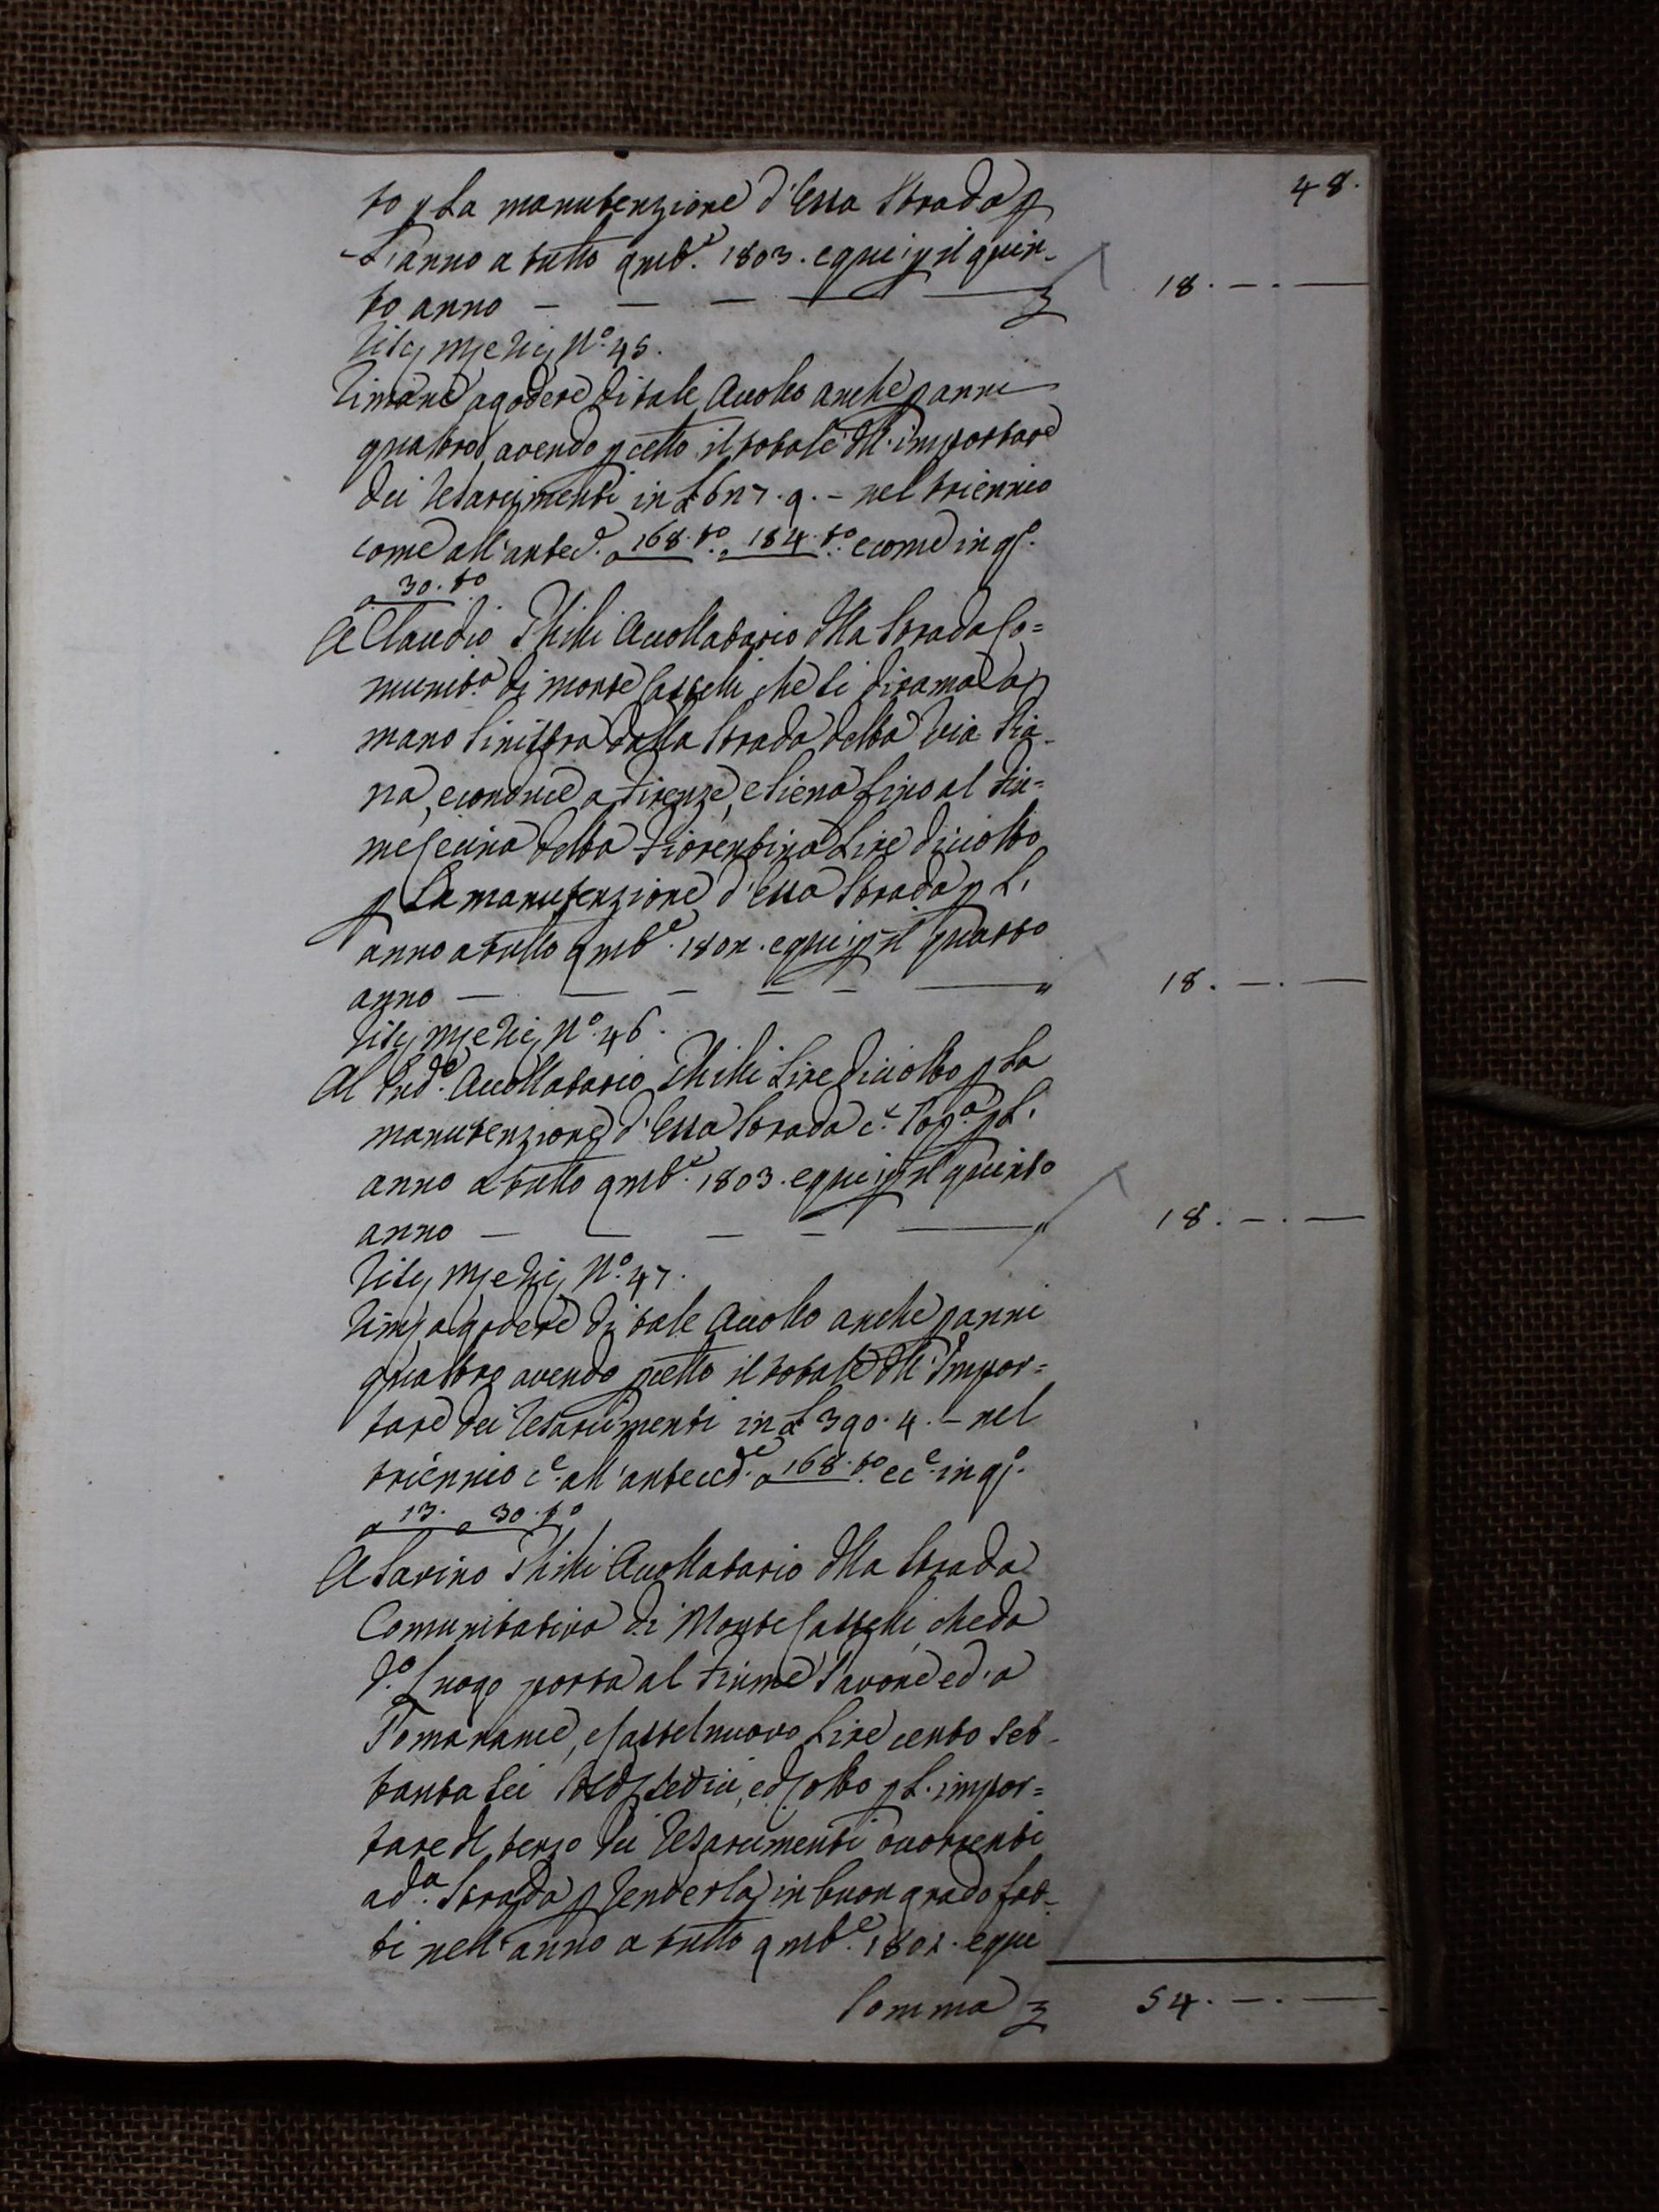 48.
to p La manutenzione d'Essa Strada p
L'anno a tutto 9mb.e 1803. e qui p il quin-
to anno — — — — — 18. — . —
N.o 45.
Rimane a godere di tale Accollo anche p anni
quattro avendo il totale dell'importare
dei resarcimenti in £ 627. 9. — nel triennio
come all'anteced.e a 168. t.o a 184. t.o e come in q.o
a 30. t.o
A Claudio Accollatario della Strada Co=
munit.a di Monte Castelli che si dirama a
mano sinistra dalla Strada detta Via
na, e conduce a Firenze, e Siena sino al Fiu=
me Cecina detta Fiorentina Lire diciotto
p La manutenzione d'Essa Strada p L'
anno a tutto 9mb.e 1802. e qui p il quarto
anno — — — — — — " 18. — . —
N.o 46.
Al Sud.o Accollatario Lire diciotto p La
manutenzione d'Essa Strada c.e Sop.a p L'
anno a tutto 9mb.e 1803. e qui p il quinto
anno — — — — — " 18. — . —
N.o 47.
a godere di tale Accollo anche p anni
quattro avendo il totale dell'Impor=
tare dei resarcimenti in £ 390. 4. — nel
triennio c.e all'anteced.e a 168. t.o e c.e in q.o
a 13. e 30. t.o
A Sarino Accollatario della Strada
Comunitativa di Monte Castelli che da
d.o Luogo porta al Fiume Pavone ed a
Pomarance, e Castelnuovo Lire cento set-
tanta sei sedici, ed otto p L'impor=
tare del terzo dei resarcimenti occorrenti
a d.a Strada p renderla in buon grado fat-
ti nell'anno a tutto 9mb.e 1801. e qui
Somma 54. — . —